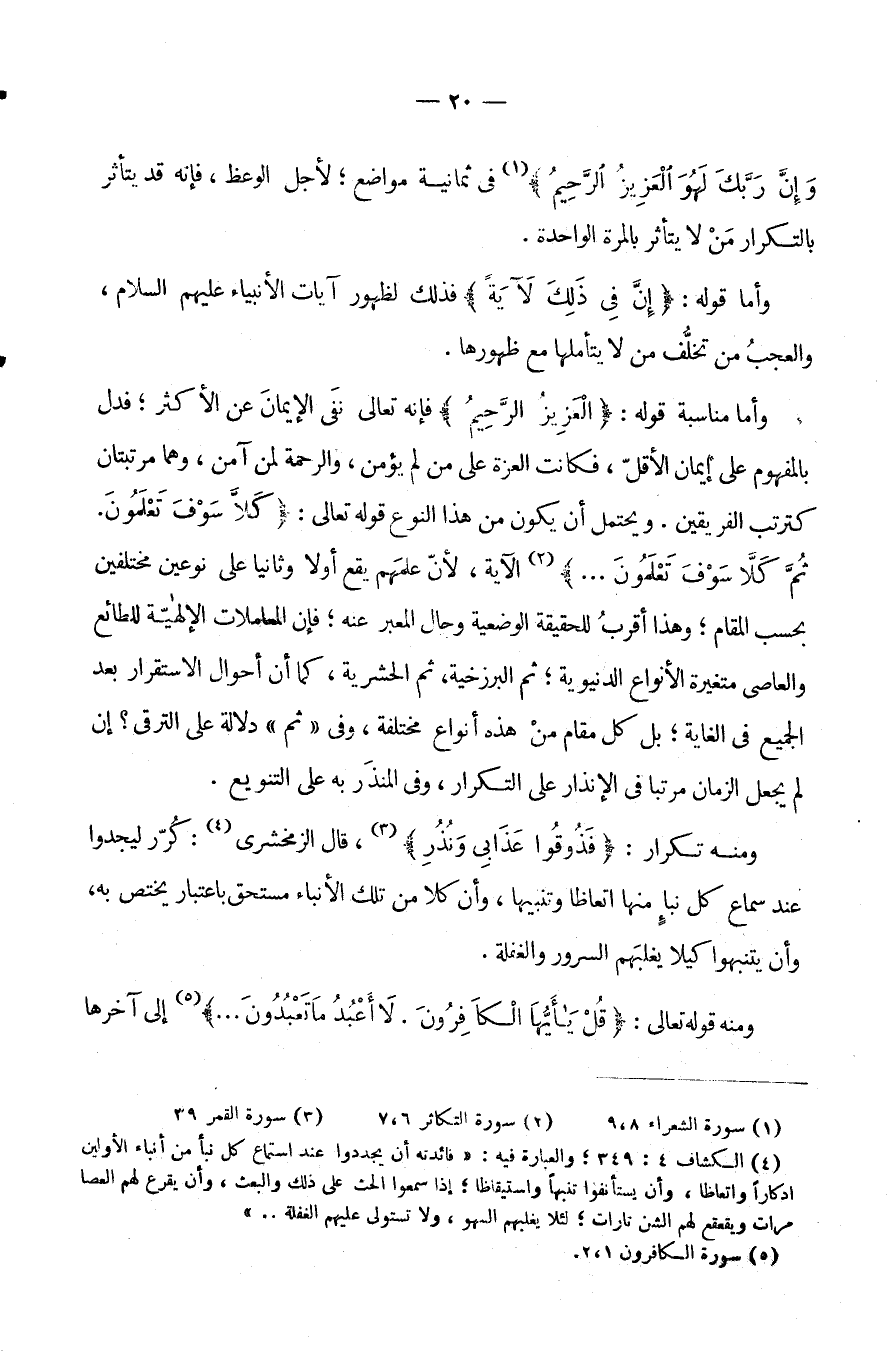 — ٢٠ —
وَإِنَّ رَبَّكَ لَهُوَ ٱلْعَزِيزُ ٱلرَّحِيمُ ﴾(١) فى ثمانيــة مواضع ؛ لأجل الوعظ ، فإنه قد يتأثر
بالتــكرار مَنْ لا يتأثر بالمرة الواحدة .
وأما قوله : ﴿ إِنَّ فِى ذَلِكَ لَآيَةً ﴾ فذلك لظهور آيات الأنبياء عليهم السلام ،
والعجبُ من تخلُّف من لا يتأملها مع ظهورها .
وأما مناسبة قوله : ﴿ الْعَزِيزُ الرَّحِيمُ ﴾ فإنه تعالى نفَى الإيمانَ عن الأكثر ؛ فدل
بالمفهوم على إيمان الأقلّ ، فـكانت العزة على من لم يؤمن ، والرحمة لمن آمن ، وهما مرتبتان
كترتب الفريقين . ويحتمل أن يكون من هذا النوع قوله تعالى : ﴿ كَلاَّ سَوْفَ تَعْلَمُونَ .
ثُمَّ كَلَّا سَوْفَ تَعْلَمُونَ ... ﴾(٢) الآية ، لأنّ علمَهم يقع أولا وثانيا على نوعين مختلفين
بحسب المقام ؛ وهذا أقربُ للحقيقة الوضعية وحال المعبر عنه ؛ فإن المعاملات الإلهٰيّـة للطائع
والعاصى متغيرة الأنواع الدنيوية ؛ ثم البرزخية، ثم الحشرية ، كما أن أحوال الاستقرار بعد
الجميع فى الغاية ؛ بل كل مقام منْ هذه أنواع مختلفة ، وفى « ثم » دلالة على الترقى ؟ إن
لم يجعل الزمان مرتبا فى الإنذار على التــكرار ، وفى المنذَر به على التنويع .
ومنــه تــكرار : ﴿ فَذُوقُوا عَذَابِى وَنُذُرِ ﴾(٣) ، قال الزمخشرى(٤) : كُرّر ليجدوا
عند سماع كل نبإٍ منها اتعاظا وتنبيها ، وأن كلا من تلك الأنباء مستحق باعتبار يختص به،
وأن يتنبهوا كيلا يغلبَهم السرور والغفلة .
ومنه قوله تعالى : ﴿ قُلْ يَـٰأَيُّهَا الْـكَافِرُونَ . لَا أَعْبُدُ مَا تَعْبُدُونَ ...﴾(٥) إلى آخرها
(١) سورة الشعراء ٩،٨ (٢) سورة التكاثر ٧،٦ (٣) سورة القمر ٣٩
(٤) الـكشاف ٤ : ٣٤٩ ؛ والعبارة فيه : « فائدته أن يجددوا عند استماع كل نبأ من أنباء الأولين
ادكاراً واتعاظا ، وأن يستأنفوا تنبهاً واستيقاظا ؛ إذا سمعوا الحث على ذلك والبعث ، وأن يقرع لهم العصا
مرات ويقعقع لهم الشن تارات ؛ لئلا يغلبهم السهو ، ولا تستولى عليهم الغفلة .. »
(٥) سورة الـكافرون ٢،١.